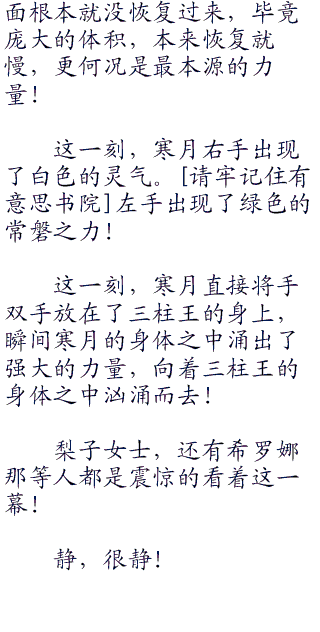 面根本就没恢复过来，毕竟
庞大的体积，本来恢复就
慢，更何况是最本源的力
量！
这一刻，寒月右手出现
了白色的灵气。[请牢记住有
意思书院]左手出现了绿色的
常磐之力！
这一刻，寒月直接将手
双手放在了三柱王的身上，
瞬间寒月的身体之中涌出了
强大的力量，向着三柱王的
身体之中汹涌而去！
梨子女士，还有希罗娜
那等人都是震惊的看着这一
幕！
静，很静！